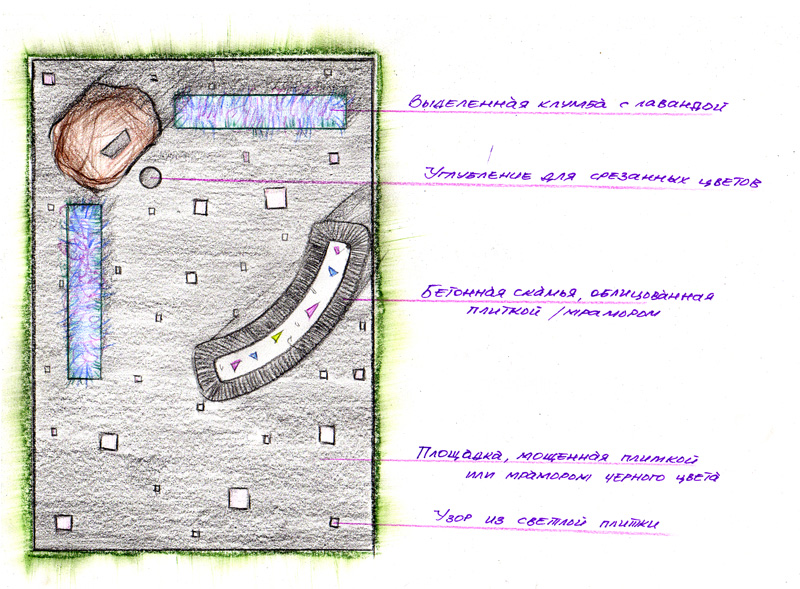 Выделенная клумба с лавандой
Углубление для срезанных цветов
Бетонная скамья, облицованная
плиткой /мрамором
Площадка, мощенная плиткой
или мрамором черного цвета
Узор из светлой плитки